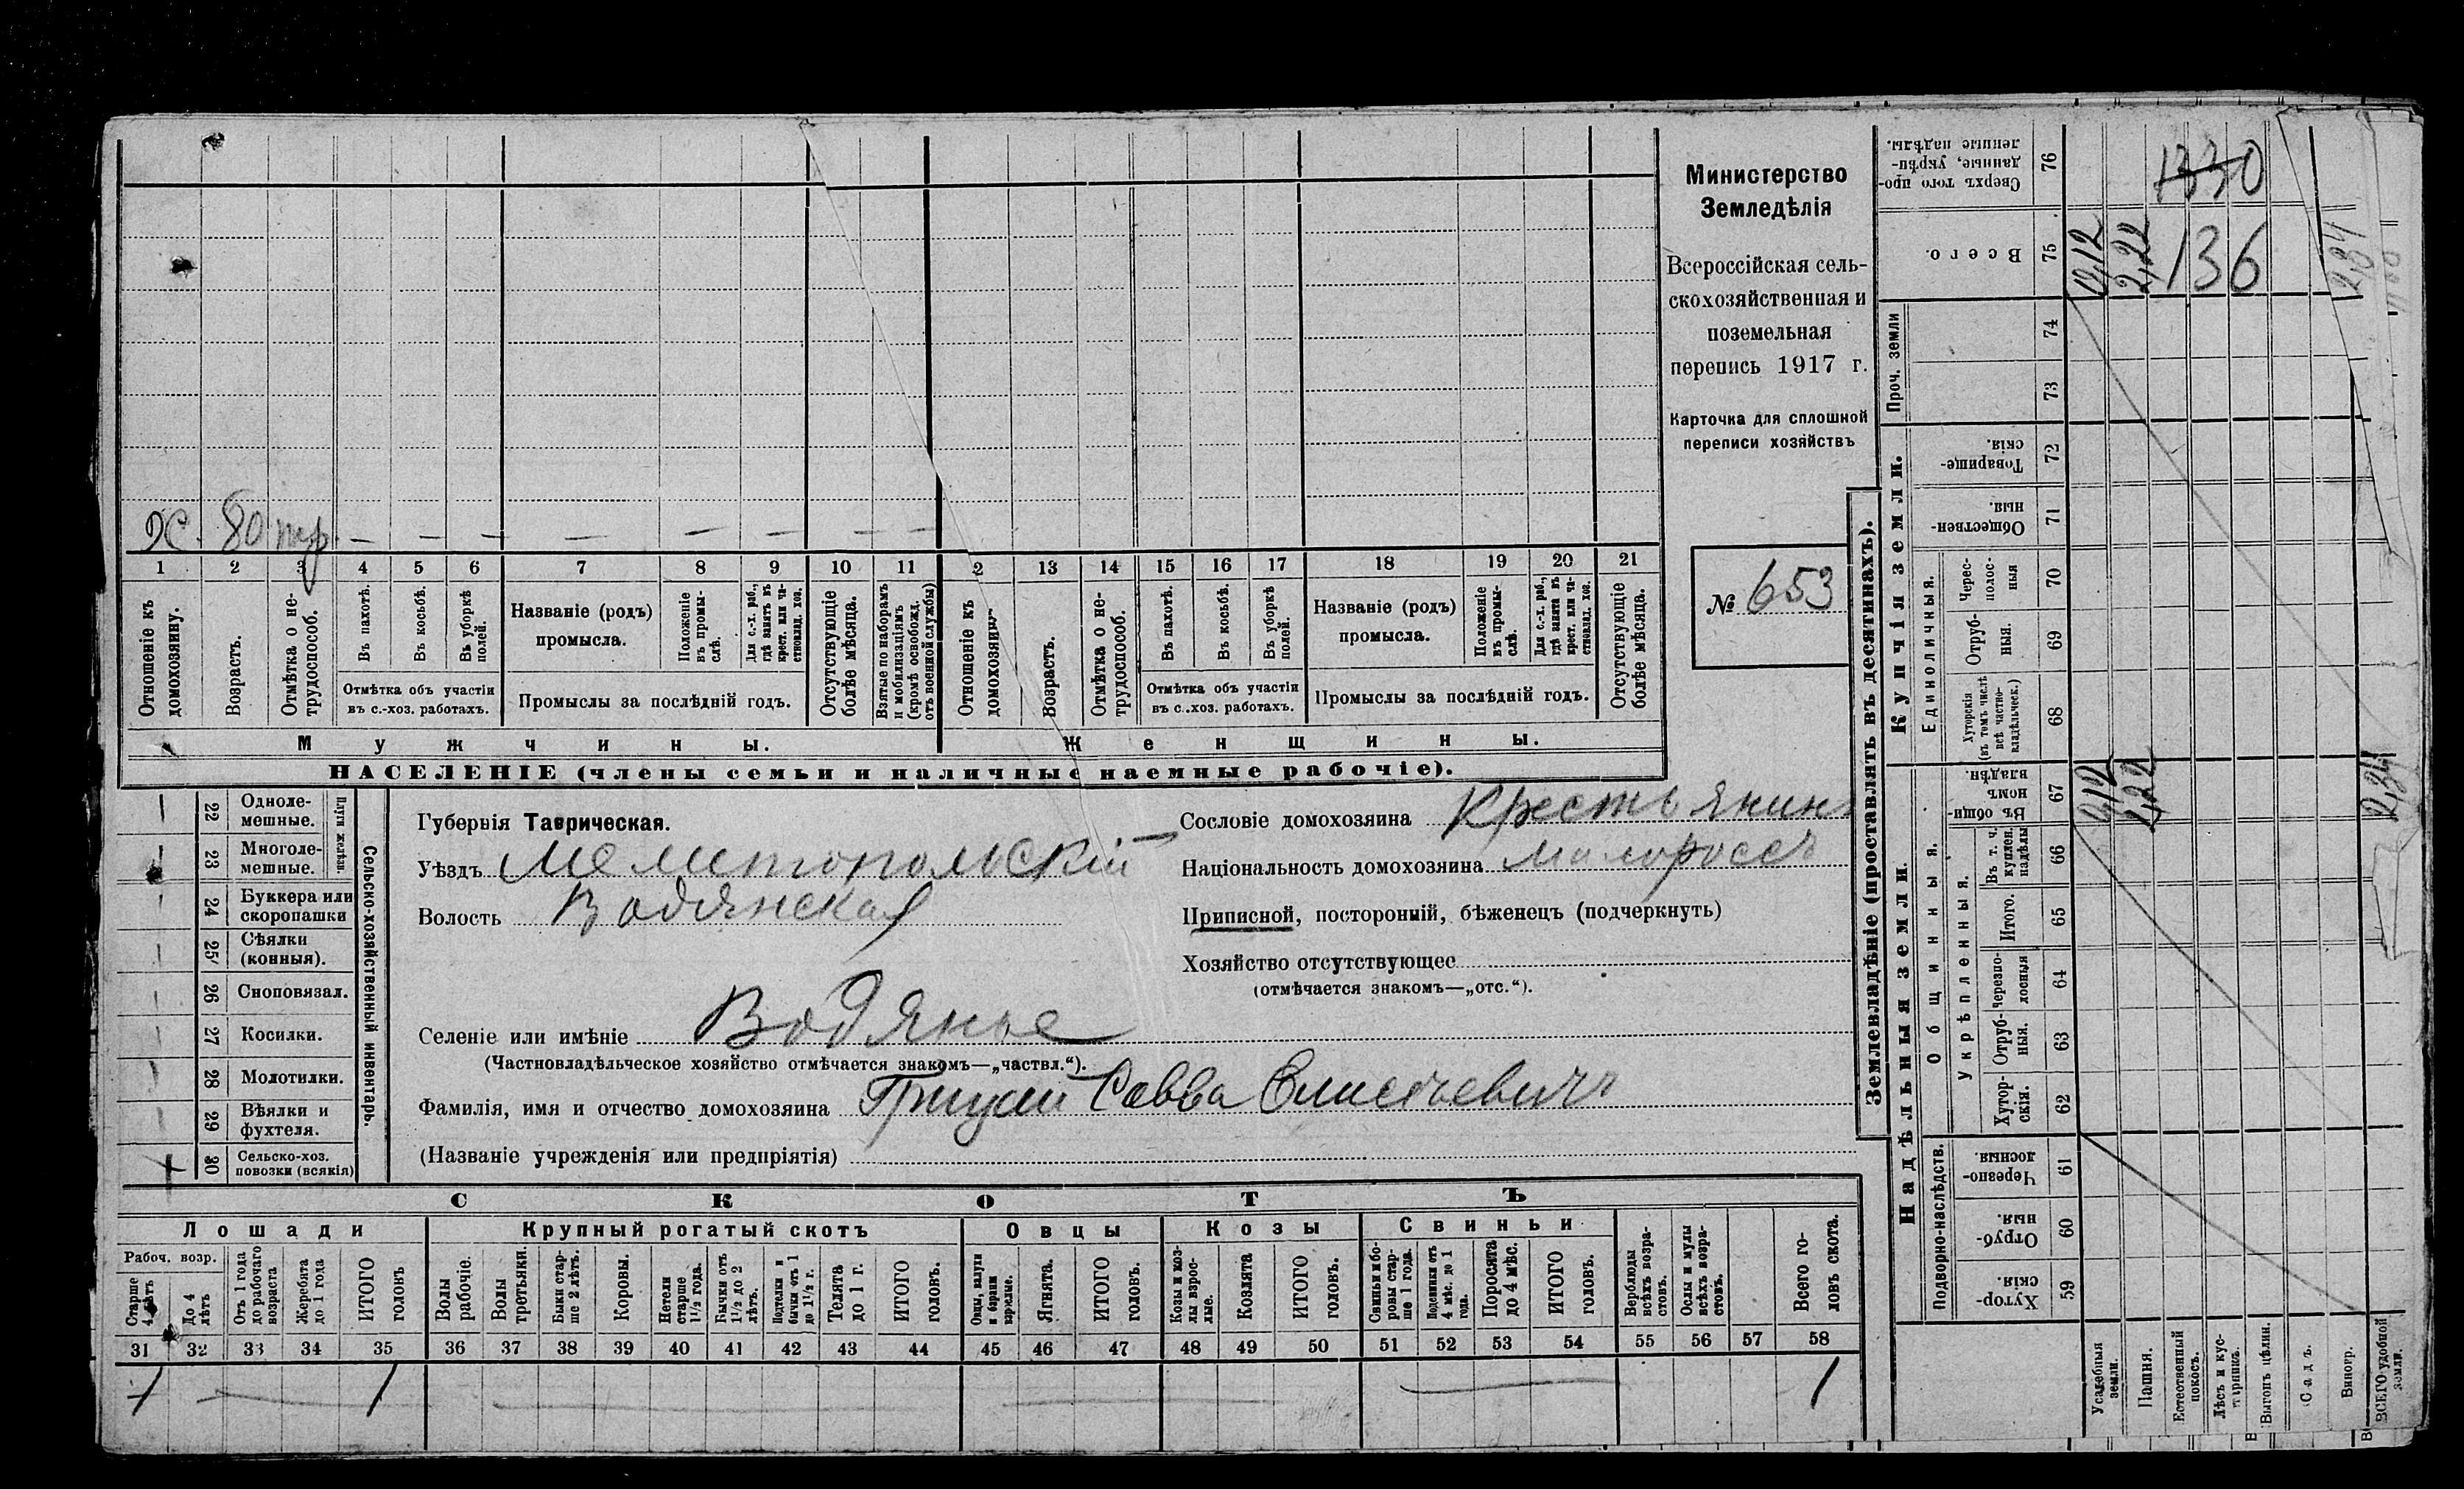 Министерство
Земледѣлія
Всероссійская сель-
скохозяйственная и
поземельная
перепись 1917 г.
Карточка для сплошной
переписи хозяйствъ
№ 653
Х. 80 — — — — — — — —
1 2 3 4 5 6 7 8 9 10 11 2 13 14 15 16 17 18 19 20 21
Отношеніе къ домохозяину.
Возрастъ.
Отмѣтка о не-трудоспособ.
Въ пахотѣ.
Въ косьбѣ.
Въ уборкѣ полей.
Отмѣтка объ участіи
въ с.-хоз. работахъ.
Названіе (родъ)
промысла.
Положеніе въ промы-слѣ.
Для с.-х. раб., гдѣ занятъ въ крест. или ча-стновлад. хоз.
Промыслы за послѣдній годъ.
Отсутствующіе болѣе мѣсяца.
Взятые по наборамъ и мобилизаціямъ (кромѣ освобожд. отъ военной службы)
Отношеніе къ
Возрастъ.
Отмѣтка о не-трудоспособ.
Въ пахотѣ.
Въ косьбѣ.
Въ уборкѣ полей.
Отмѣтка объ участіи
въ с.-хоз. работахъ.
Названіе (родъ)
промысла.
Положеніе въ промы-слѣ.
Для с.-х. раб., гдѣ занята въ крест. или ча-стновлад. хоз.
Промыслы за послѣдній годъ.
Отсутствующіе болѣе мѣсяца.
Мужчины. Женщины.
НАСЕЛЕНІЕ (члены семьи и наличные наемные рабочіе).
22 Одноле-мешные.
23 Многоле-мешные.
Плуги желѣзн.
24 Буккера или скоропашки
25 Сѣялки (конныя).
26 Сноповязал.
27 Косилки.
28 Молотилки.
29 Вѣялки и фухтеля.
30 Сельско-хоз. повозки (всякія)
Сельско-хозяйственный инвентарь.
Губернія Таврическая.
Уѣздъ Мелитопольскій
Волость Водянская
Сословіе домохозяина Крестьянинъ
Національность домохозяина малороссъ
Приписной, посторонній, бѣженецъ (подчеркнуть)
Хозяйство отсутствующее
(отмѣчается знакомъ—„отс.“).
Селеніе или имѣніе Водянье
(Частновладѣльческое хозяйство отмѣчается знакомъ—„частвл.“).
Фамилія, имя и отчество домохозяина Грицай Савва Елисѣевичъ
(Названіе учрежденія или предпріятія)
СКОТЪ
Лошади Крупный рогатый скотъ Овцы Козы Свиньи
Рабоч. возр.
Старше 4 лѣтъ
До 4 лѣтъ
Отъ 1 года до рабочаго возраста
Жеребята до 1 года
ИТОГО головъ
Волы рабочіе.
Волы третьяки.
Быки стар-ше 2 лѣтъ.
Коровы.
Нетели старше 1½ года.
Бычки отъ 1½ до 2 лѣтъ.
Подтелки и бычки отъ 1 до 1½ г.
Телята до 1 г.
ИТОГО головъ.
Овцы, валухи и бараны взрослые.
Ягнята.
ИТОГО головъ.
Козы и коз-лы взрос-лые.
Козлята
ИТОГО головъ.
Свиньи и бо-ровы стар-ше 1 года.
Подсвинки отъ 4 мѣс. до 1 года.
Поросята до 4 мѣс.
ИТОГО головъ.
Верблюды всѣхъ возра-стовъ.
Ослы и мулы всѣхъ возра-стовъ.
Всего го-ловъ скота.
31 32 33 34 35 36 37 38 39 40 41 42 43 44 45 46 47 48 49 50 51 52 53 54 55 56 57 58
1 — 1 — — — 1
Землевладѣніе (проставлять въ десятинахъ).
Надѣльныя земли. Купчія земли. Проч. земли
Подворно-наслѣдств. Общинныя. Единоличныя.
Укрѣпленныя.
Хутор-скія. 59
Отруб-ныя. 60
Черезпо-лосныя. 61
Хутор-скія. 62
Отруб-ныя. 63
Черезпо-лосныя 64
Итого. 65
Въ т. ч. куплен. надѣлы 66
Въ общи-номъ владѣн. 67
Хуторскія (въ томъ числѣ всѣ частно-владѣльческ.) 68
Отруб-ныя. 69
Черес-полос-ныя 70
Обществен-ныя. 71
Товарище-скія. 72
73
74
Всего. 75
Сверхъ того про-данные, укрѣп-ленные надѣлы. 76
Усадебныя земли.
Пашня.
Естественный покосъ.
Лѣсъ и кус-тарникъ.
Выгонъ цѣлин.
Садъ.
Виногр.
ВСЕГО удобной земли.
0,12 2,22 2,34
0,12 2,22 2,34
1330
136